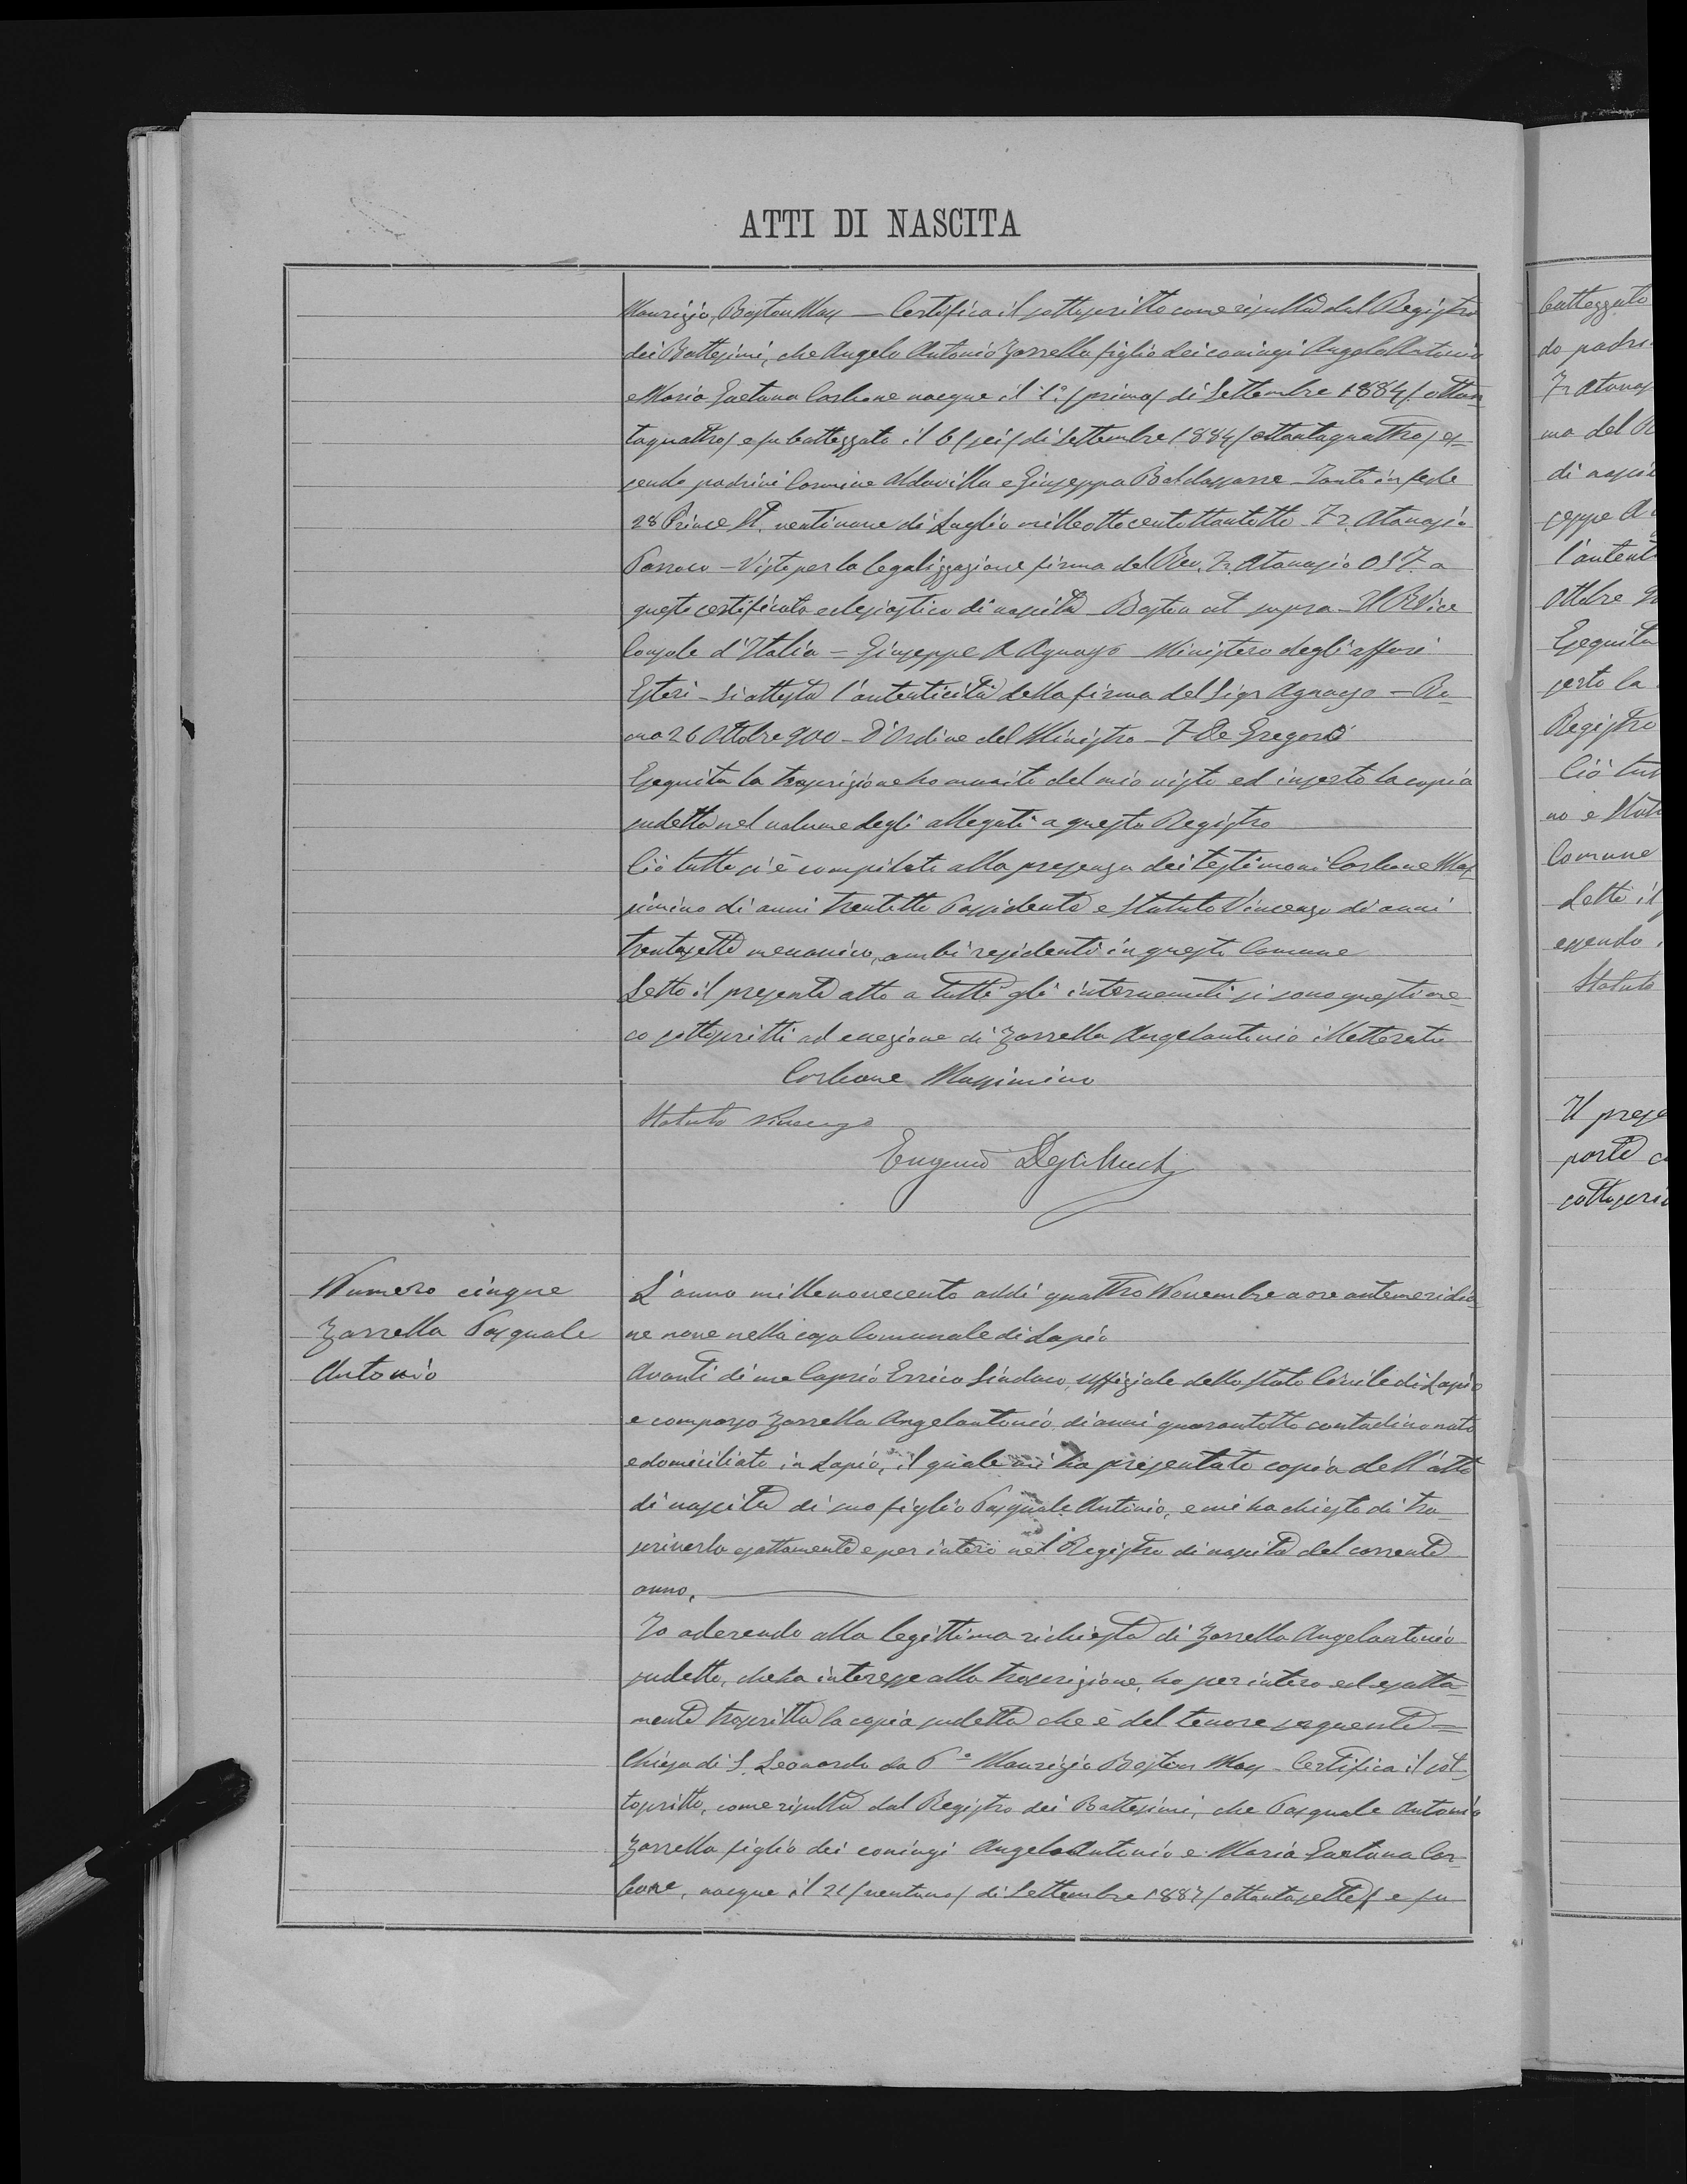 ATTI DI NASCITA
Maurizio, Boston Mass — Certifica il sottoscritto come risulta dal Registro
dei Battesimi, che Angelo Antonio Zarrella figlio dei coniugi Angelo Antonio
e Maria Gaetana Carbone nacque il 1° (primo) di Settembre 1884 (ottan
taquattro) e fu battezzato il 6 (sei) di Settembre 1884 (ottantaquattro) es-
sendo padrini Carmine Aldavilla e Giuseppa Baldassarre - Tanto in fede
28 Prince St. ventinove di Luglio milleottocentottantotto - Fr. Atanasio
Parroco - Visto per la legalizzazione firma del Rev. Fr. Atanasio O S F a
questo certificato eclesiastico di nascita - Boston ut supra - Il R Vice
Console d'Italia = Giuseppe A Agnasso - Ministero degli affari
Esteri - Si attesta l'autenticità della firma del Sigr Agnasso - Ro-
ma 26 Ottobre 900 - D'Ordine del Ministro - F De Gregorio
Eseguita la trascrizione ho munito del mio visto ed inserto la copia
sudetta nel volume degli allegati a questo Registro
Ciò tutto si è compilato alla presenza dei testimoni Carbone Mas
simino di anni trentotto Possidente e Statuto Vincenzo di anni
trentasette meccanico, ambi residenti in questo Comune
Letto il presente atto a tutti gli intervenuti si sono questi me-
co sottoscritti ad eccezione di Zarrella Angelantonio illetterato
Carbone Massimino
Statuto Vincenzo
Eugenio
Numero cinque
Zarrella Pasquale
Antonio
L'anno millenovecento addì quattro Novembre a ore antemeridia
ne nove nella casa Comunale di Lapio
Avanti di me Caprio Errico Sindaco, uffiziale dello Stato Civile di Lapio
e comparso Zarrella Angelantonio di anni quarantotto contadino nato
e domiciliato in Lapio, il quale mi ha presentato copia dell'atto
di nascita di suo figlio Pasquale Antonio, e mi ha chiesto di tra-
scriverlo esattamente e per intero nel Registro di nascita del corrente
anno.
Io aderendo alla legittima richiesta di Zarrella Angelantonio
sudetto, che ha interesse alla trascrizione, ho per intero ed esatta-
mente trascritta la copia sudetta che è del tenore seguente =
Chiesa di S. Leonardo da P° Maurizio Boston Mass - Certifica il sot-
toscritto, come risulta dal Registro dei Battesimi, che Pasquale Antonio
Zarrella figlio dei coniugi Angelo Antonio e Maria Gaetana Car-
bone, nacque il 21 (ventuno) di Settembre 1887 (ottantasette) e fu
battezzato
do padri
Fr Atanas
ma del R
di nascit
seppe A
l'autent
Ottobre 90
Eseguita
serto la
Registro
Ciò tut
no e Statu
Comune
Letto il
essendo
Statuto
Il prese
parte
sottoscri